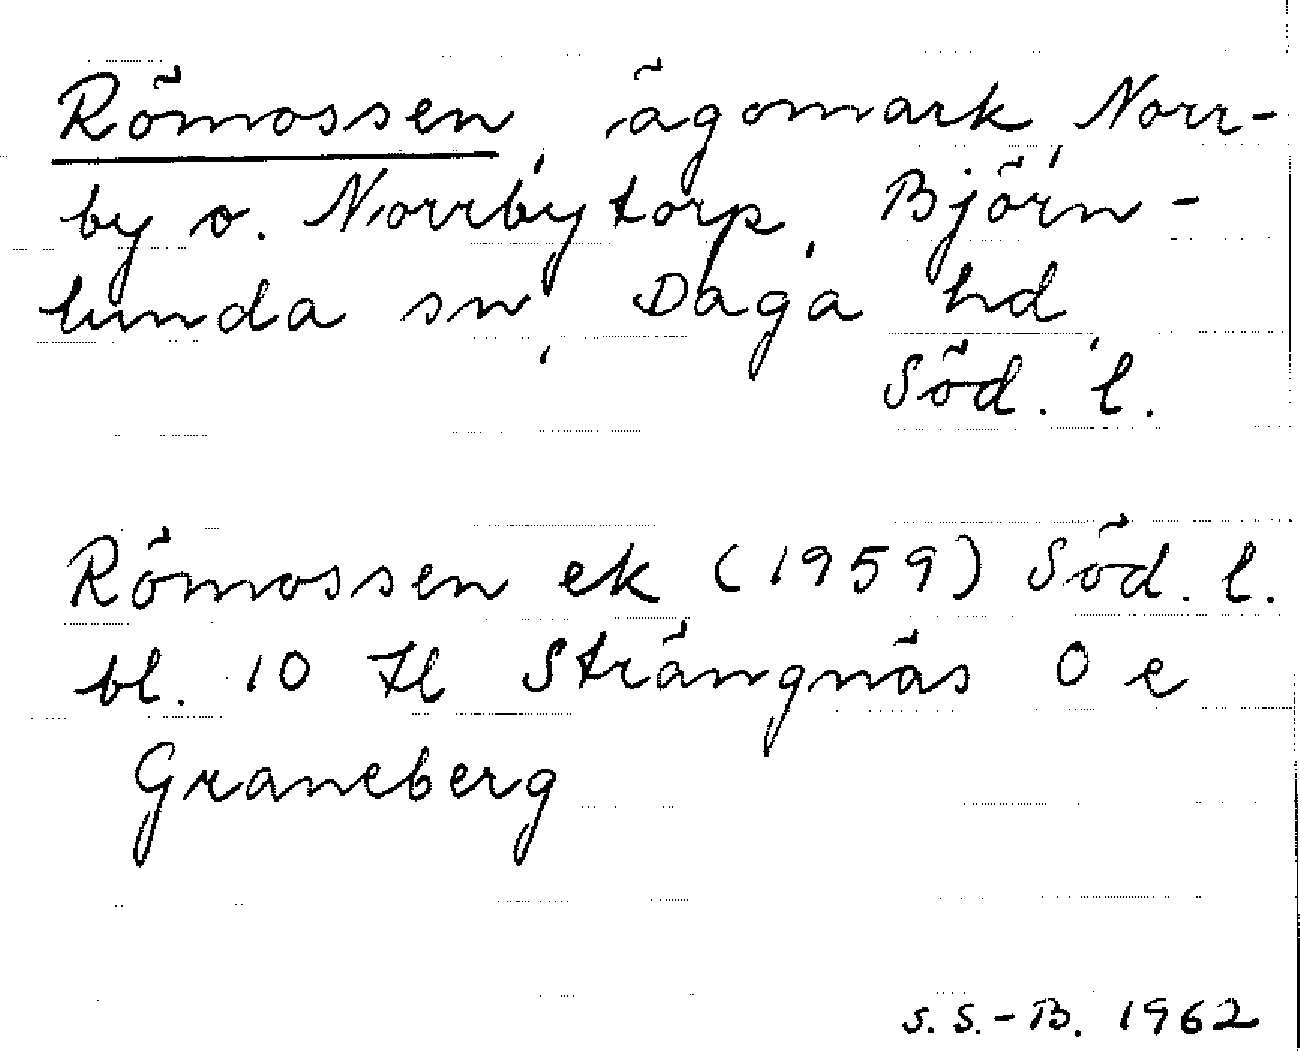 Römossen, ägomark, Norr-
by o. Norrbytorp, Björn-
lunda sn, Daga hd,
Söd. l.
Römossen ek (1959) Söd. l.
bl. 10 H Strängnäs 0 e
Graneberg
S. S.-B. 1962